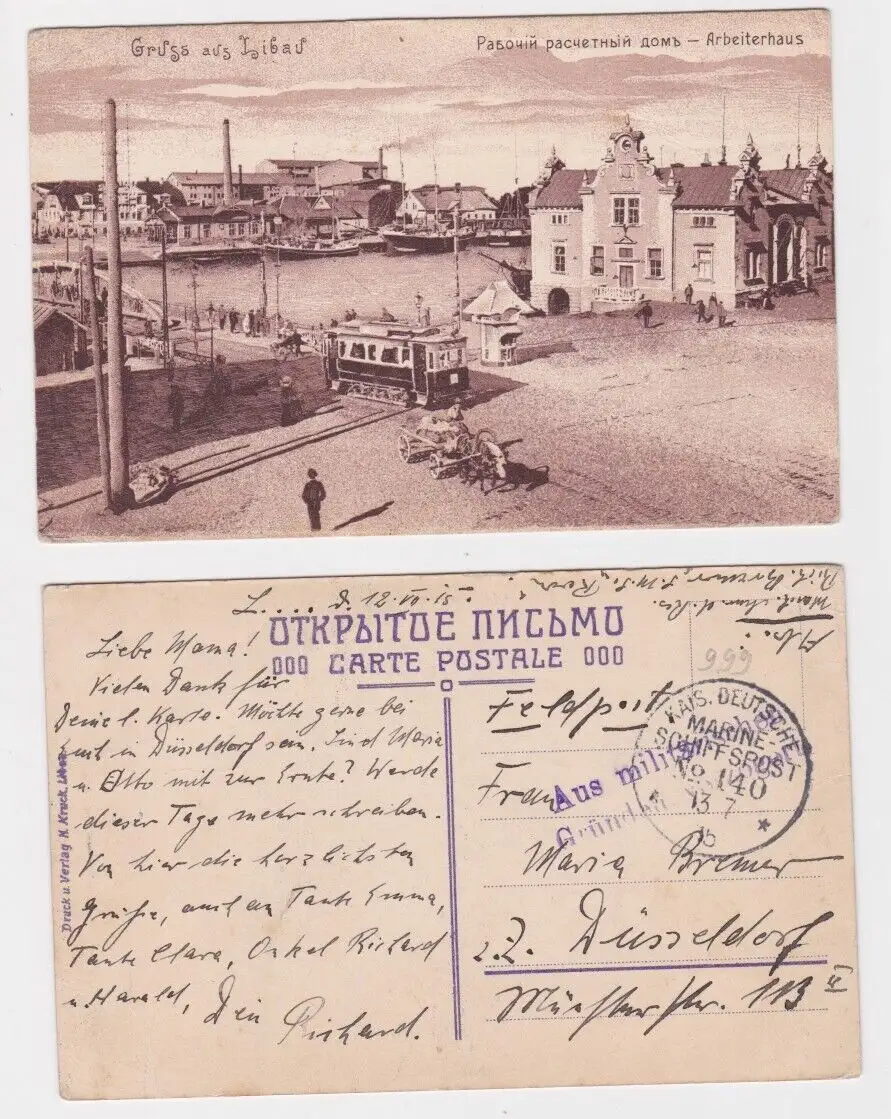 Gruss aus Libau
Рабочій расчетный домъ — Arbeiterhaus
L.... d. 12.VII.15.
ОТКРЫТОЕ ПИСЬМО
CARTE POSTALE
Liebe Mama!
Vielen Dank für
Deine l. Karte. Möchte gerne bei
mit in Düsseldorf sein. Sind Maria
u. Otto mit zur Ernte? Werde
dieser Tage mehr schreiben.
Von hier die herzlichsten
Grüße, auch an Tante Emma,
Tante Clara, Onkel Richard
u. Harald, Dein
Richard.
Druck u. Verlag H. Kruck, Libau
Abs.:
999
Feldpost
KAIS. DEUTSCHE
MARINE-
SCHIFFSPOST
No 140
13 7
15
*
Aus militärischen
Gründen
Frau
Maria Bremer
z.Z. Düsseldorf
Münsterstr. 113 II